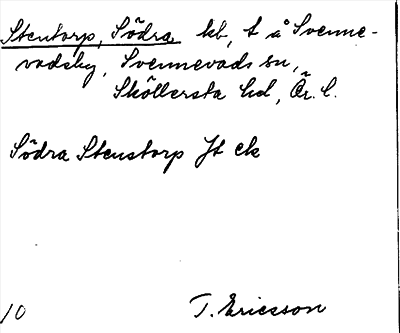 Stentorp, Södra kb, t å Svenne-
vadsby, Svennevads sn,
Sköllersta hd, Ör. l.
Södra Stenstorp Jt ek
10
T. Ericsson